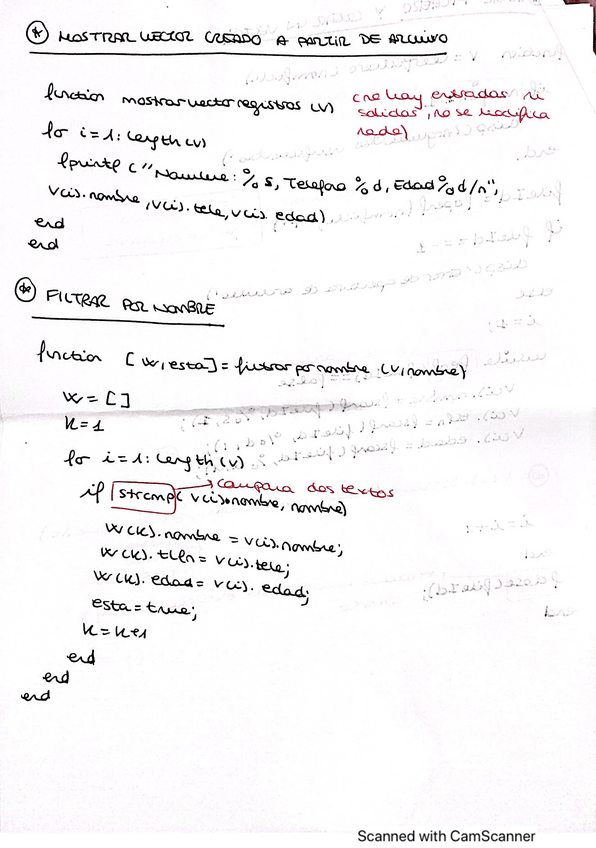 * MOSTRAR VECTOR CREADO A PARTIR DE ARCHIVO
function mostrarvectorregistros (v) (no hay entradas ni
salidas, no se modifica
nada)
for i=1:length(v)
fprintf ("Nombre: %s, Telefono %d, Edad %d/n",
v(i).nombre, v(i).tele, v(i).edad)
end
end
* FILTRAR POR NOMBRE
function [w,esta]=filtrarpornombre (v,nombre)
w=[]
k=1
for i=1:length(v)
if strcmp( v(i).nombre, nombre) → compara dos textos
w(k).nombre = v(i).nombre;
w(k).tlfn = v(i).tele;
w(k).edad= v(i).edad;
esta=true;
k=k+1
end
end
end
Scanned with CamScanner